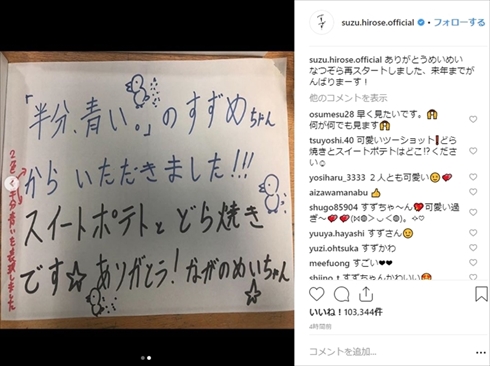 「半分、青い。」のすずめちゃん
からいただきました!!!
スイートポテトとどら焼き
です☆ありがとう!ながのめいちゃん☆
suzu.hirose.official • フォローする
suzu.hirose.official ありがとうめいめい
なつぞら再スタートしました、来年までが
んばりまーす!
他のコメントを表示
osumesu28 早く見たいです。🙆
何が何でも見ます🙆
tsuyoshi.40 可愛いツーショット❗どら
焼きとスイートポテトはどこ!?ください
☺
yosiharu_3333 2人とも可愛い❤
aizawamanabu 👍
shugo85904 すずちゃ~ん💘可愛い過
ぎ~❤💘
yuuya.hayashi すずさん🙂
yuzi.ohtsuka すずかわ
meefuong すごい❤❤
shiino.t すずちゃんかわいい
いいね!103,344件
4時間前
コメントを追加...